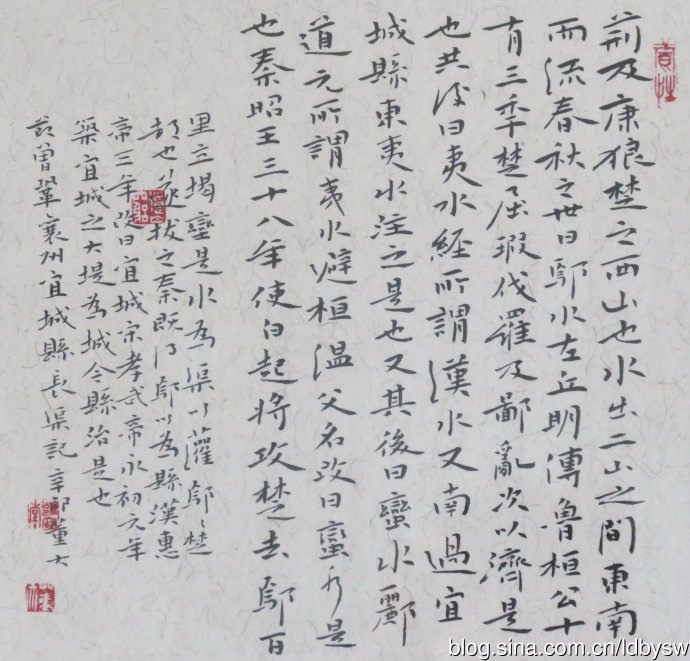 荊及康狼楚之西山也水出二山之間東南
而流春秋之世曰鄢水左丘明傳魯桓公十
有三年楚屈瑕伐羅及鄙亂次以濟是
也其後曰夷水經所謂漢水又南過宜
城縣東夷水注之是也又其後曰蠻水酈
道元所謂夷水避桓溫父名改曰蠻水是
也秦昭王三十八年使白起將攻楚去鄢百
里立堨壅是水為渠以灌鄢〻楚
都也遂拔之秦既得鄢以為縣漢惠
帝三年改曰宜城宋孝武帝永初元年
築宜城之大堤為城今縣治是也
節曾鞏襄州宜城縣長渠記辛卯董大
blog.sina.com.cn/ldbysw